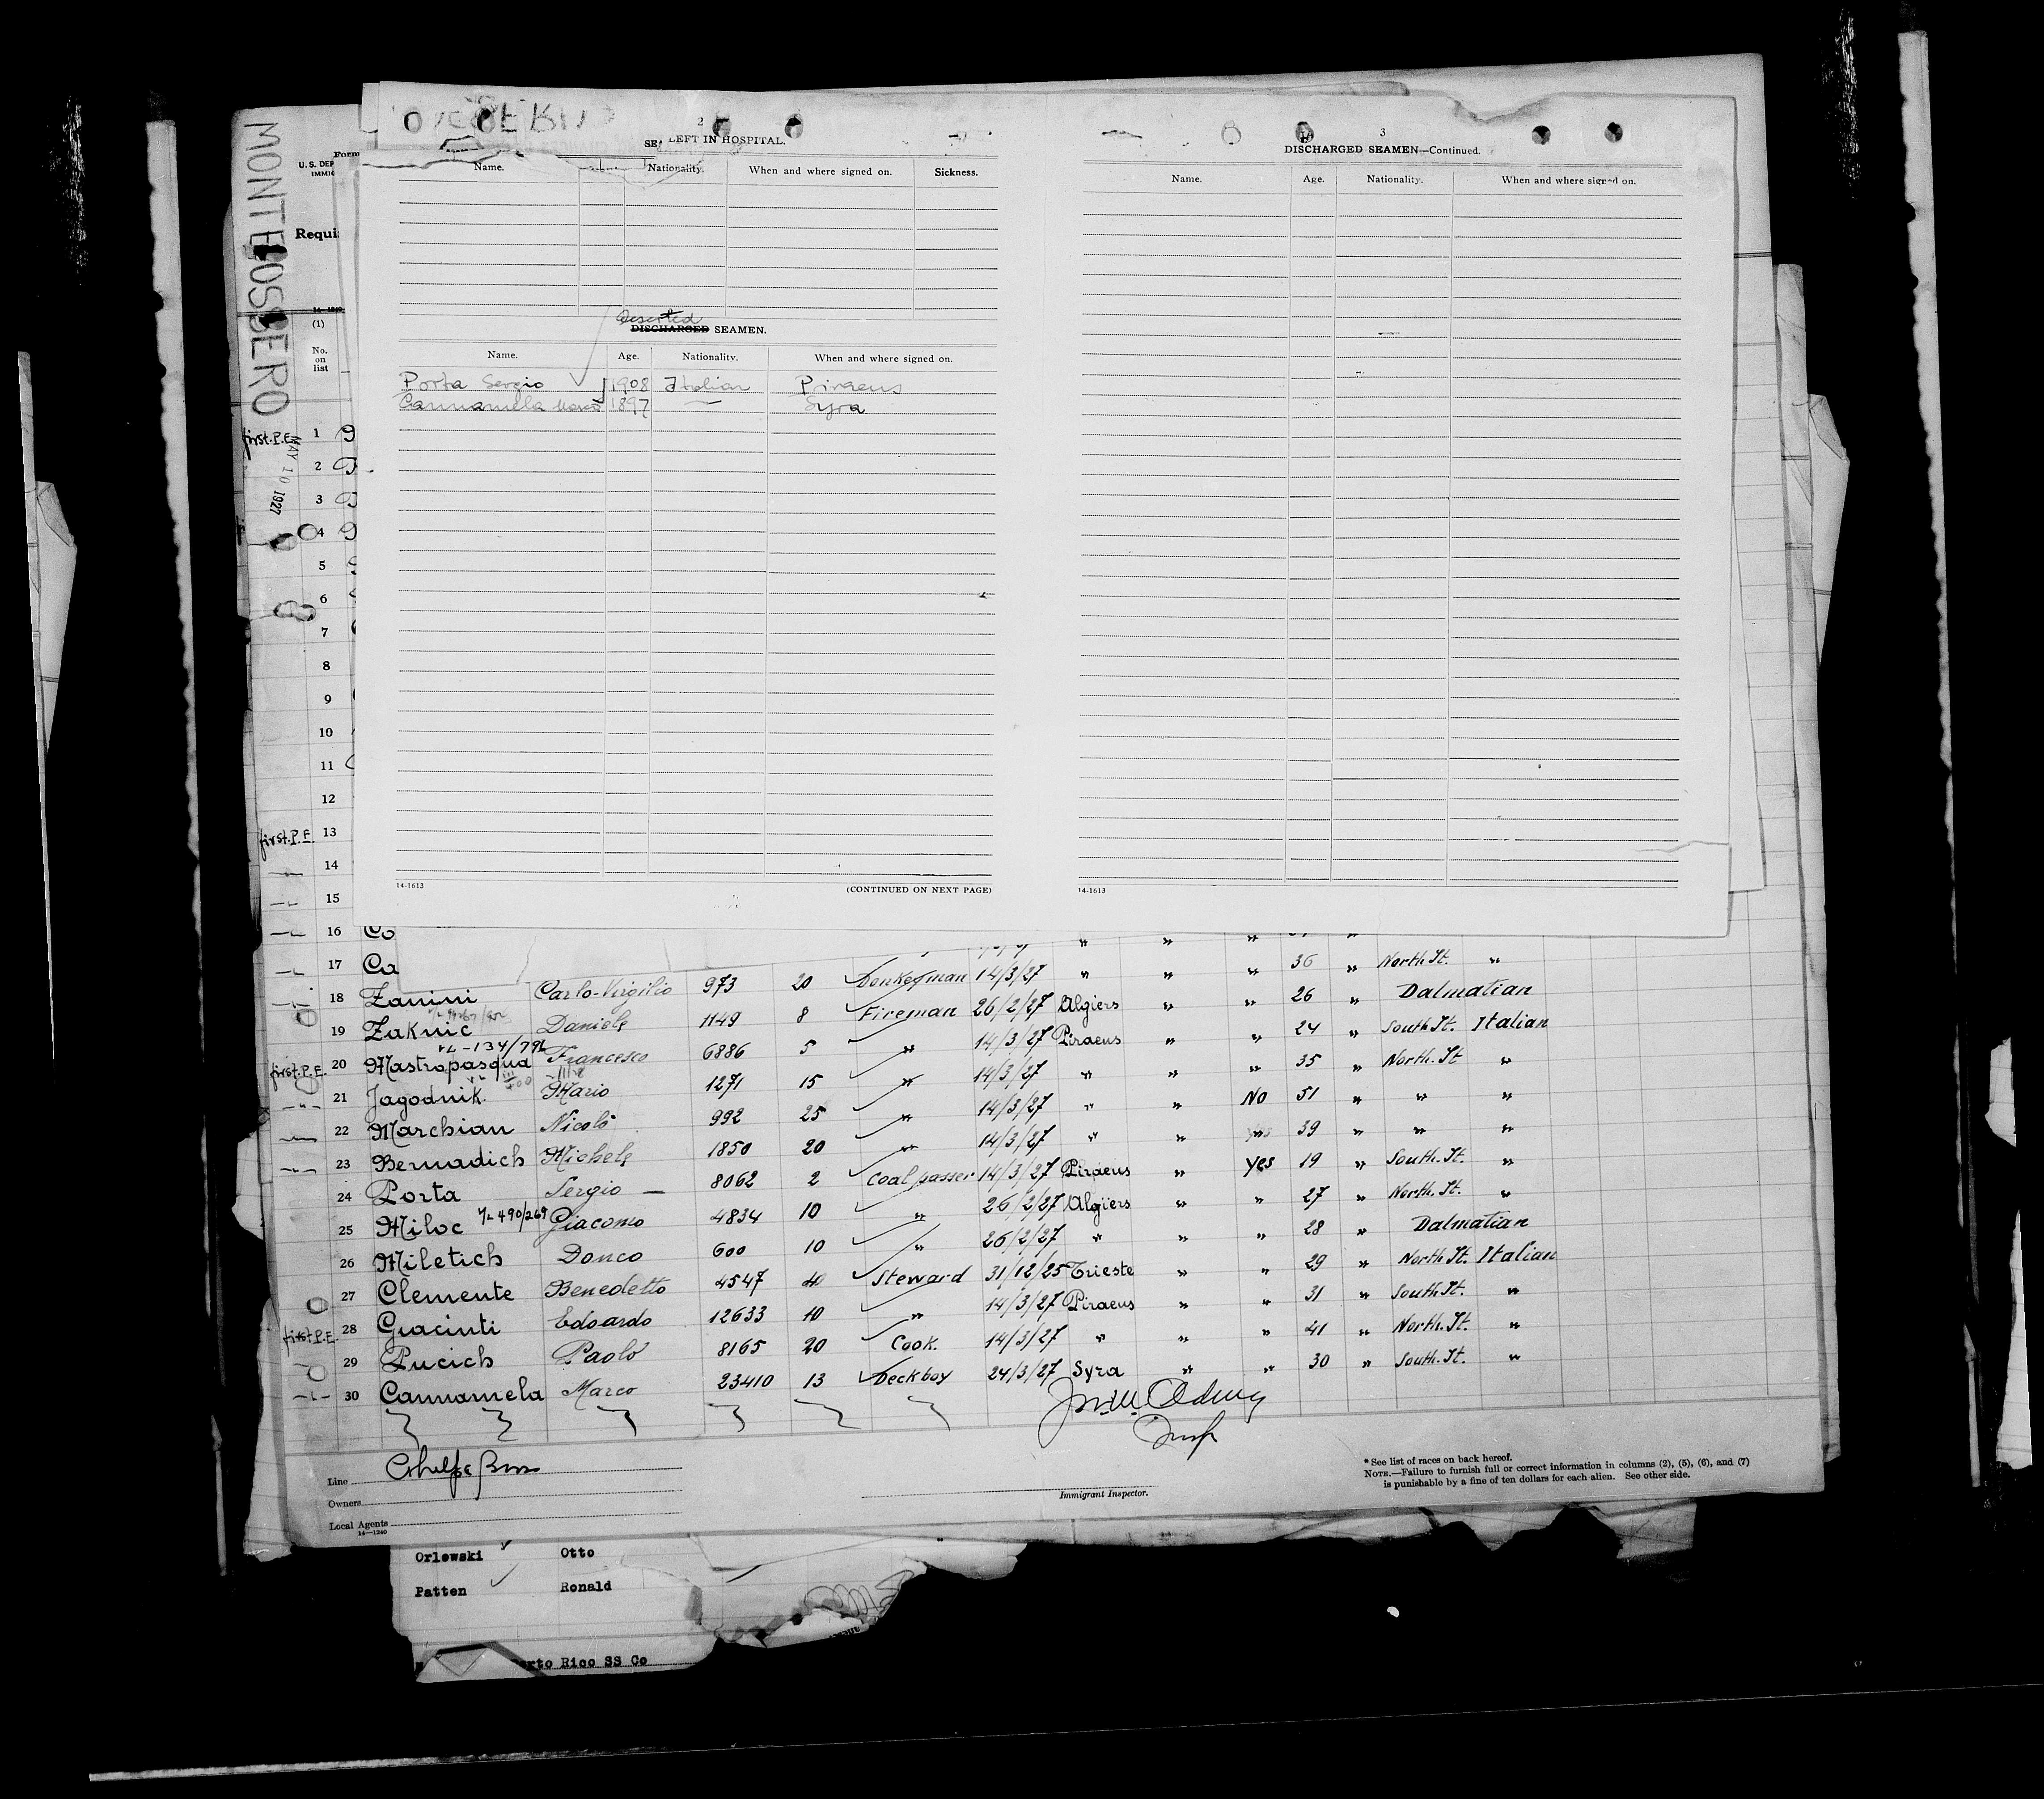 MONTE OSSERO
MAY 10 1927
U.S. DEP
IMMIG
Form
Requi
14-1240
(1)
No.
on
list
2
LEFT IN HOSPITAL.
Name. Nationality. When and where signed on. Sickness.
Deserted
DISCHARGED SEAMEN.
Name. Age. Nationality. When and where signed on.
Porta Sergio 1908 Italian Piraeus
Cannamela Marco 1897 Syra
14-1613 (CONTINUED ON NEXT PAGE)
3
DISCHARGED SEAMEN—Continued.
Name. Age. Nationality. When and where signed on.
14-1613
first.P.E. 1
2
3
4
5
6
7
8
9
10
11
12
first.P.E. 13
14
15
16 Co
17 Ca
18 Zanini Carlo-Virgilio 973 20 Donkeyman 14/3/27 " " " 36 " North It. "
19 Zaknic Daniele 1149 8 Fireman 26/2/27 Algiers " " 26 " Dalmatian
-134/792
first.P.E. 20 Mastropasqua Francesco 6886 5 " 14/3/27 Piraeus " " 24 " South It. Italian
21 Jagodnik Mario 1271 15 " 14/3/27 " " " 35 " North. It "
22 Marchian Nicolò 992 25 " 14/3/27 " " No 51 " " "
23 Bernadich Michele 1850 20 " 14/3/27 " " yes 39 " " "
24 Porta Sergio — 8062 2 Coalpasser 14/3/27 Piraeus " yes 19 " South. It. "
25 Miloc 490/269 Giacomo 4834 10 " 26/2/27 Algiers " " 27 " North. It. "
26 Miletich Donco 600 10 " 26/2/27 " " " 28 " Dalmatian
27 Clemente Benedetto 4547 10 Steward 31/12/25 Trieste " " 29 " North It. Italian
first P.E. 28 Giacinti Edoardo 12633 10 " 14/3/27 Piraeus " " 31 " South It. "
29 Pucich Paolo 8165 20 Cook. 14/3/27 " " " 41 " North. It. "
30 Cannamela Marco 23410 13 Deckboy 24/3/27 Syra " " 30 " South. It. "
Insp
Line Phelps Bros
Owners
Local Agents
14—1240
Immigrant Inspector.
* See list of races on back hereof.
NOTE.—Failure to furnish full or correct information in columns (2), (5), (6), and (7)
is punishable by a fine of ten dollars for each alien. See other side.
Orlewski Otto
Patten Ronald
orto Rico SS Co